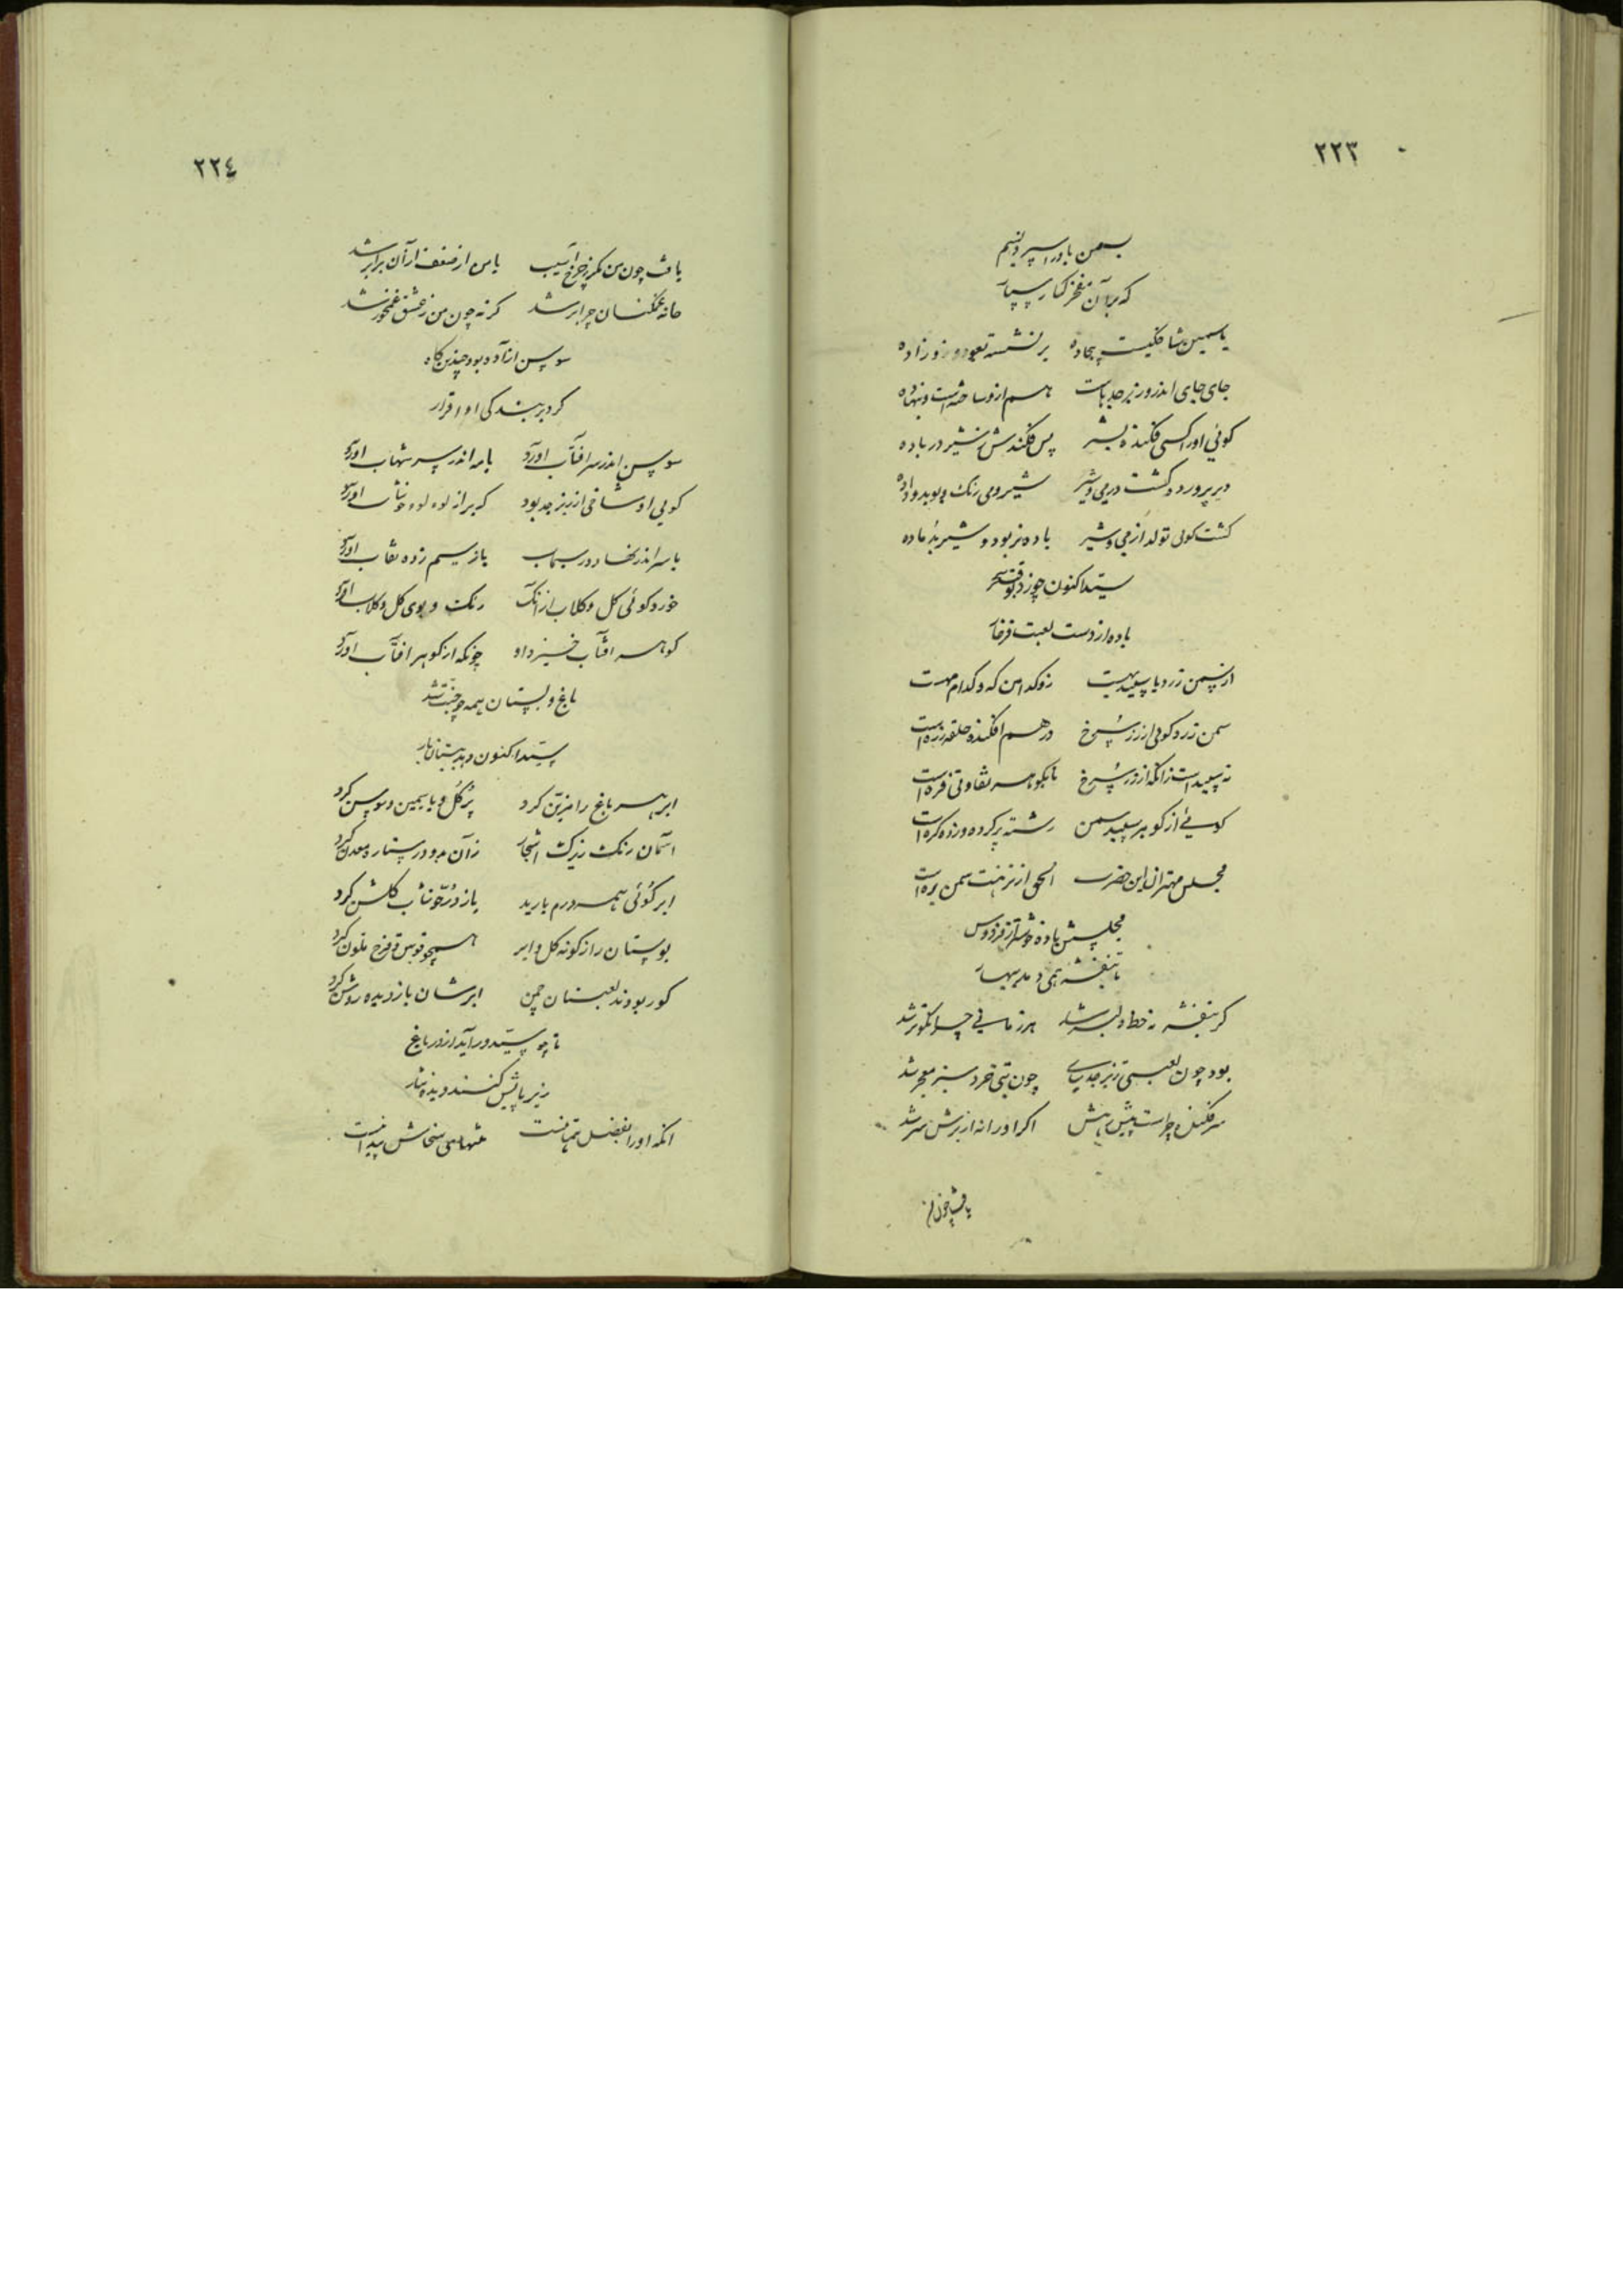 ٢٢٣
بسمن باد را سپرد نسیم
که بر آن مفخر کبار سپار
یاسمین شاخکیست بیجاده بر نشسته
جای جای اندرو زبرجد ناب هم ازو ساخته است و بنهاده
کوئی او را کسی فکنده بشیر پس فکندش ز شیر در باده
دیر پرورده کشت در می و شیر شیر و می رنک و بوی بدو داده
کشت کوئی تولد از می و شیر باده نر بود و شیر بد ماده
سیدا کنون چو زد بوقت سحر
باده از دست لعبت فرخار
از سمن زرد یا سپید بهست زو کدامین که و کدام مهست
سمن زرد کوئی از زر سرخ درهم افکنده حلقه زره است
نه سپید است زانکه از زر سرخ تا بکوهر تفاوتی فره است
کوئی از کوهر سپید سمن رشته پر کرده و زده کره است
مجلس مهتران این حضرت الحق از نزهت سمن بره است
مجلسش باد خوشتر از فردوس
تا بنفشه همی دمد ببهار
کر بنفشه نه خط دلبر شد هر زمانی چرا نکوتر شد
بود چون لعبتی زبرجد پای چون بتی خرد سبز معجر شد
سر فکنده چراست پیش بپیش اکر او را نه از برش سر شد
٢٢٤
یافت چون من مکر ز چرخ آسیب یا من از ضعف از آن برابر شد
جامه غمکنان چرا برشد کرنه چون من ز عشق غمخور شد
سوسن آزاده بود چندین کاه
کرد بر بندکی او اقرار
سوسن اندر سر آفتاب آورد یا مه اندر سر شهاب آورد
کوئی او شاخی از زبرجد بود که بر از لولو خوشاب آورد
یا سر اندر نهاد در سیماب یا ز سیم زده نقاب آورد
خورد کوئی کل و کلاب از آنک رنک و بوی کل و کلاب آورد
کوهر آفتاب خیزد ازو چونکه از کوهر آفتاب آورد
باغ و بستان همه چو جنت شد
سیدا کنون دهد ببستان بار
ابر بهر باغ را مزین کرد پر کل و یاسمین و سوسن کرد
آسمان رنک زیرک اشجار زآن مه و در ستاره معدن کرد
ابر کوئی همه درم بارید یا ز در خوشاب کلشن کرد
بوستان را ز کونه کل و ابر همچو قوس قزح ملون کرد
کور بودند لعبتان چمن ابرشان باز دیده روشن کرد
تا چو سید در آید از در باغ
زیر پایش کنند دیده نثار
آنکه او را بفضل همتا نیست منتهای سخاش پیدا نیست